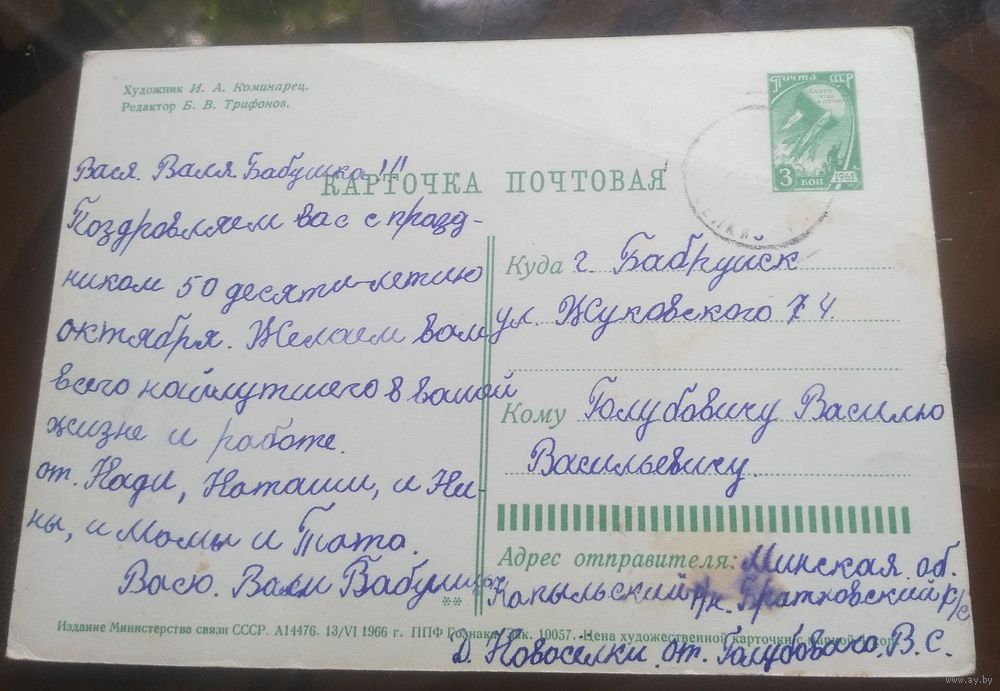 Художник И. А. Коминарец.
Редактор Б. В. Трифонов.
Почта СССР
3 коп
1961
КАРТОЧКА ПОЧТОВАЯ
Вася. Валя Бабушка!!!
Поздровляем вас с празд-
ником 50 десяти-летию
октября. Желаем вам
всего найлутшего в вашей
жизне и работе.
от. Нади, Наташи, и Ни-
ны, и Мамы и Тата.
Васю. Вали
Куда г Бабруйск
ул. Жуковского 4.
Кому Голубовичу Василью
Васильевичу.
Адрес отправителя: Минская об.
Капыльский Братковский с/с
Д. Новоселки. от. Голубовича. В. С.
**
Издание Министерства связи СССР. А14476. 13/VI 1966 г. ППФ Гознака. Зак. 10057. Цена художественной карточки с маркой коп.
www.ay.by